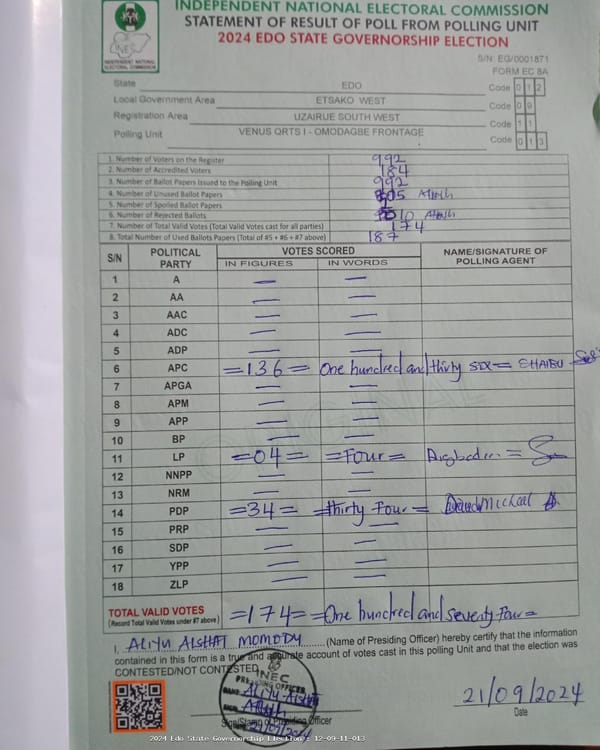 INDEPENDENT NATIONAL ELECTORAL COMMISSION
STATEMENT OF RESULT OF POLL FROM POLLING UNIT
2024 EDO STATE GOVERNORSHIP ELECTION
INEC
INDEPENDENT NATIONAL ELECTORAL COMMISSION
S/N: EG/0001871
FORM EC 8A
State EDO Code 0 1 2
Local Government Area ETSAKO WEST Code 0 9
Registration Area UZAIRUE SOUTH WEST Code 1 1
Polling Unit VENUS QRTS I - OMODAGBE FRONTAGE Code 0 1 3
1. Number of Voters on the Register 992
2. Number of Accredited Voters 184
3. Number of Ballot Papers Issued to the Polling Unit 992
4. Number of Unused Ballot Papers
5. Number of Spoiled Ballot Papers
6. Number of Rejected Ballots 10
7. Number of Total Valid Votes (Total Valid Votes cast for all parties) 174
8. Total Number of Used Ballots Papers (Total of #5 + #6 + #7 above) 187
S/N POLITICAL PARTY VOTES SCORED NAME/SIGNATURE OF POLLING AGENT
IN FIGURES IN WORDS
1 A — —
2 AA — —
3 AAC — —
4 ADC — —
5 ADP — —
6 APC =136= One hundred and thirty six= SHAIBU
7 APGA — —
8 APM — —
9 APP — —
10 BP — —
11 LP =04= =Four=
12 NNPP — —
13 NRM — —
14 PDP =34= =thirty Four= David Micheal
15 PRP — —
16 SDP — —
17 YPP — —
18 ZLP — —
TOTAL VALID VOTES =174= =One hundred and Seventy Four=
(Record Total Valid Votes under #7 above)
I, ALIYU ALSHAT MOMODY (Name of Presiding Officer) hereby certify that the information
contained in this form is a true and accurate account of votes cast in this polling Unit and that the election was
CONTESTED/NOT CONTESTED
INEC
PRESIDING OFFICER
21/09/2024
Sign/Stamp of Presiding Officer
21/09/2024
Date
2024 Edo State Governorship Election - 12-09-11-013